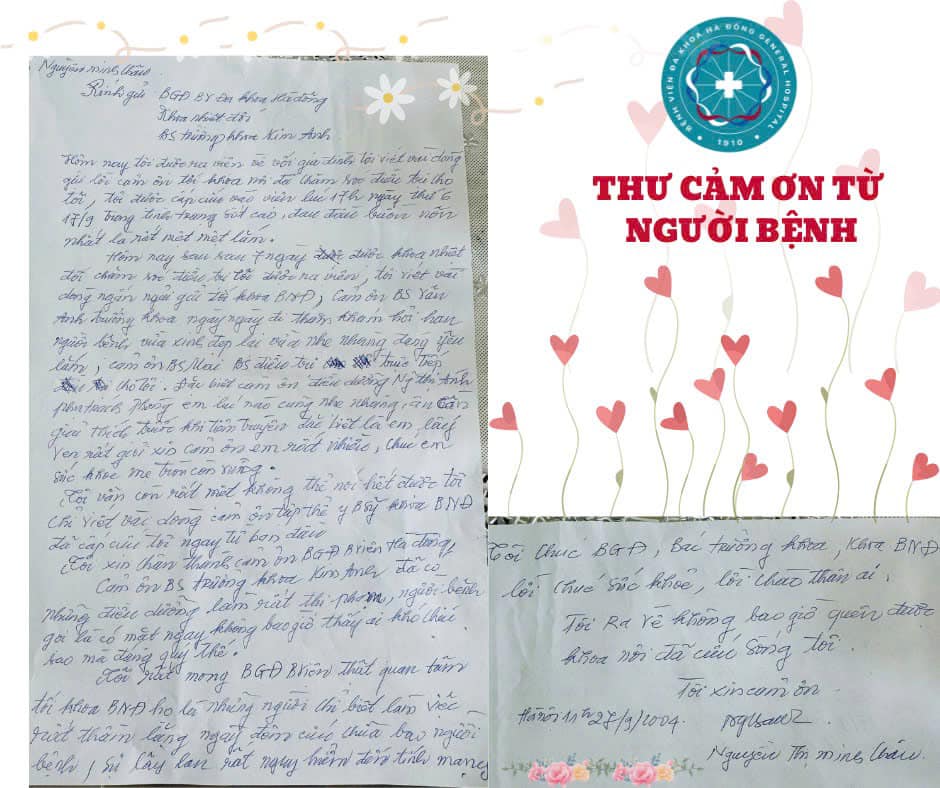 BỆNH VIỆN ĐA KHOA HÀ ĐÔNG GENERAL HOSPITAL
1910
THƯ CẢM ƠN TỪ
NGƯỜI BỆNH
Nguyễn minh Châu
Kính gửi BGĐ BV Đa Khoa Hà đông
Khoa nhiệt đới
BS trưởng khoa Kim Anh
Hôm nay tôi được ra viện về với gia đình tôi viết vài dòng
gửi lời cảm ơn tới khoa nơi đã chăm sóc điều trị cho
tôi, tôi được cấp cứu vào viện lúc 17h ngày thứ 6
17/9 trong tình trạng sốt cao, đau đầu buồn nôn
nhất là rất mệt mệt lắm.
Hôm nay sau 7 ngày được khoa nhiệt
đới chăm sóc điều trị tôi được ra viện, tôi viết vài
dòng ngắn ngủi gửi tới khoa BNĐ, Cảm ơn BS Vân
Anh trưởng khoa ngày ngày đi thăm khám hỏi han
người bệnh vừa xinh đẹp lại vừa nhẹ nhàng đáng yêu
lắm, cảm ơn BS Mai BS điều trị trực tiếp
cho tôi. Đặc biệt cảm ơn điều dưỡng Anh
phụ trách phòng em lúc nào cũng nhẹ nhàng, ân cần
giải thích trước khi tiêm truyền đặc biệt là em lấy
ven rất giỏi xin cảm ơn em rất nhiều, chúc em
sức khoẻ mẹ tròn con vuông.
Tôi vẫn còn rất mệt không thể nói hết được tôi
chỉ viết vài dòng cảm ơn tập thể y Bsỹ khoa BNĐ
đã cấp cứu tôi ngay từ ban đầu
Tôi xin chân thành cảm ơn BGĐ Bviện Hà đông,
Cảm ơn BS trưởng khoa Kim Anh đã có
những điều dưỡng làm rất người bệnh
gọi là có mặt ngay không bao giờ thấy ai khó chịu
sao mà đáng quý thế.
Tôi rất mong BGĐ Bviện thật quan tâm
tới khoa BNĐ họ là những người chỉ biết làm việc
rất thầm lặng ngày đêm cứu chữa bao người
bệnh, sự lây lan rất nguy hiểm đến tính mạng
Tôi chúc BGĐ, Bác trưởng khoa, Khoa BNĐ
lời chúc sức khoẻ, lời chào thân ái.
Tôi Ra về không bao giờ quên được
khoa nơi đã cứu sống tôi.
Tôi xin cảm ơn
Hà nội 27/9/2004
Nguyễn Thị minh Châu